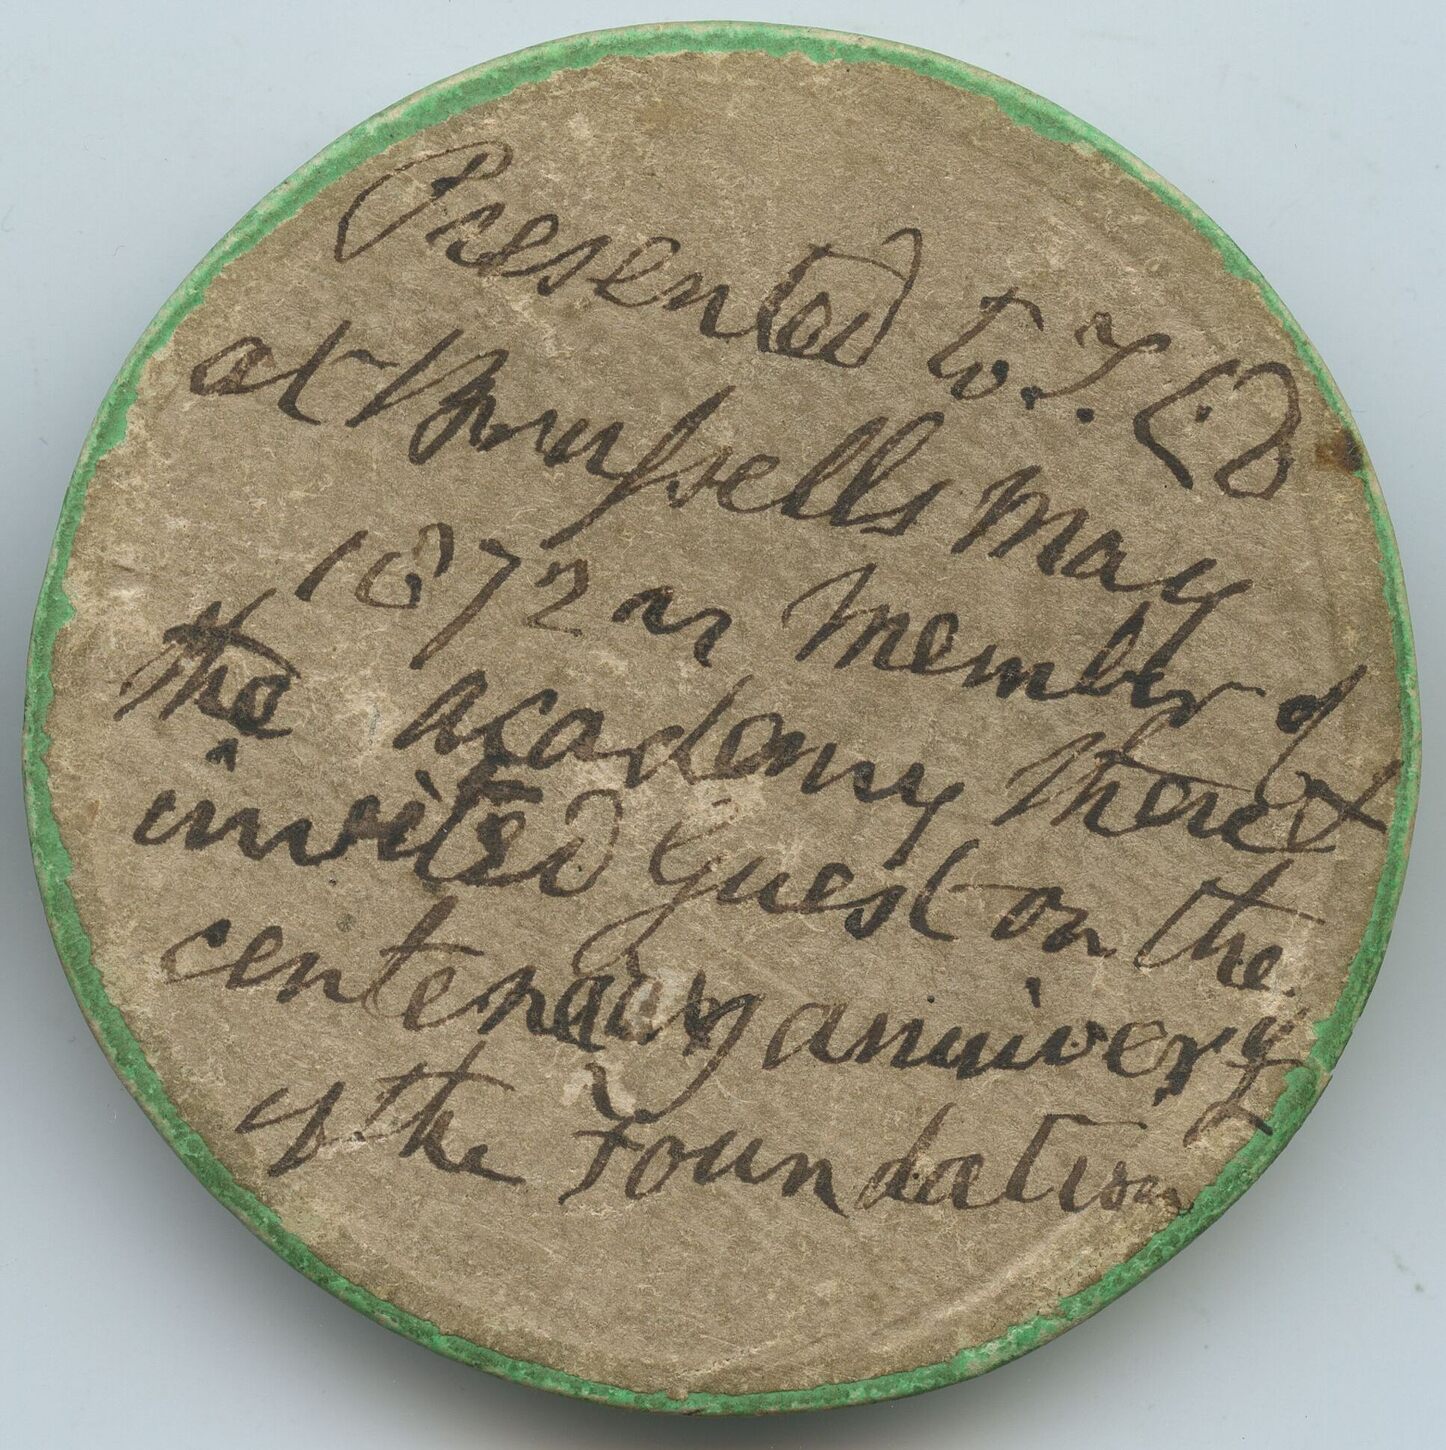 Presented to T. L. D
at Brussells May
1872 as member of
the academy there &
invited guest on the
centenary anniversy
of the Foundation